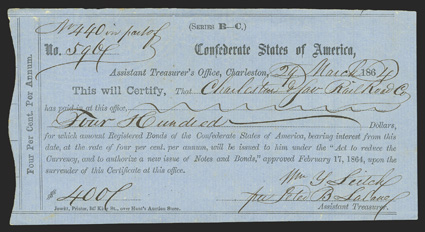 (SERIES B—C.)
No 440 in part of
No. 5964
Confederate States of America,
Assistant Treasurer's Office, Charleston, 29 March 1864
This will Certify, That Charleston & Sav Rail Road Co
has paid in at this office,
Four Hundred Dollars,
for which amount Registered Bonds of the Confederate States of America, bearing interest from this
date, at the rate of four per cent. per annum, will be issued to him under the "Act to reduce the
Currency, and to authorize a new issue of Notes and Bonds," approved February 17, 1864, upon the
surrender of this Certificate at this office.
Wm Y Leitch
$ 400
per
B
Assistant Treasurer.
Four Per Cent. Per Annum.